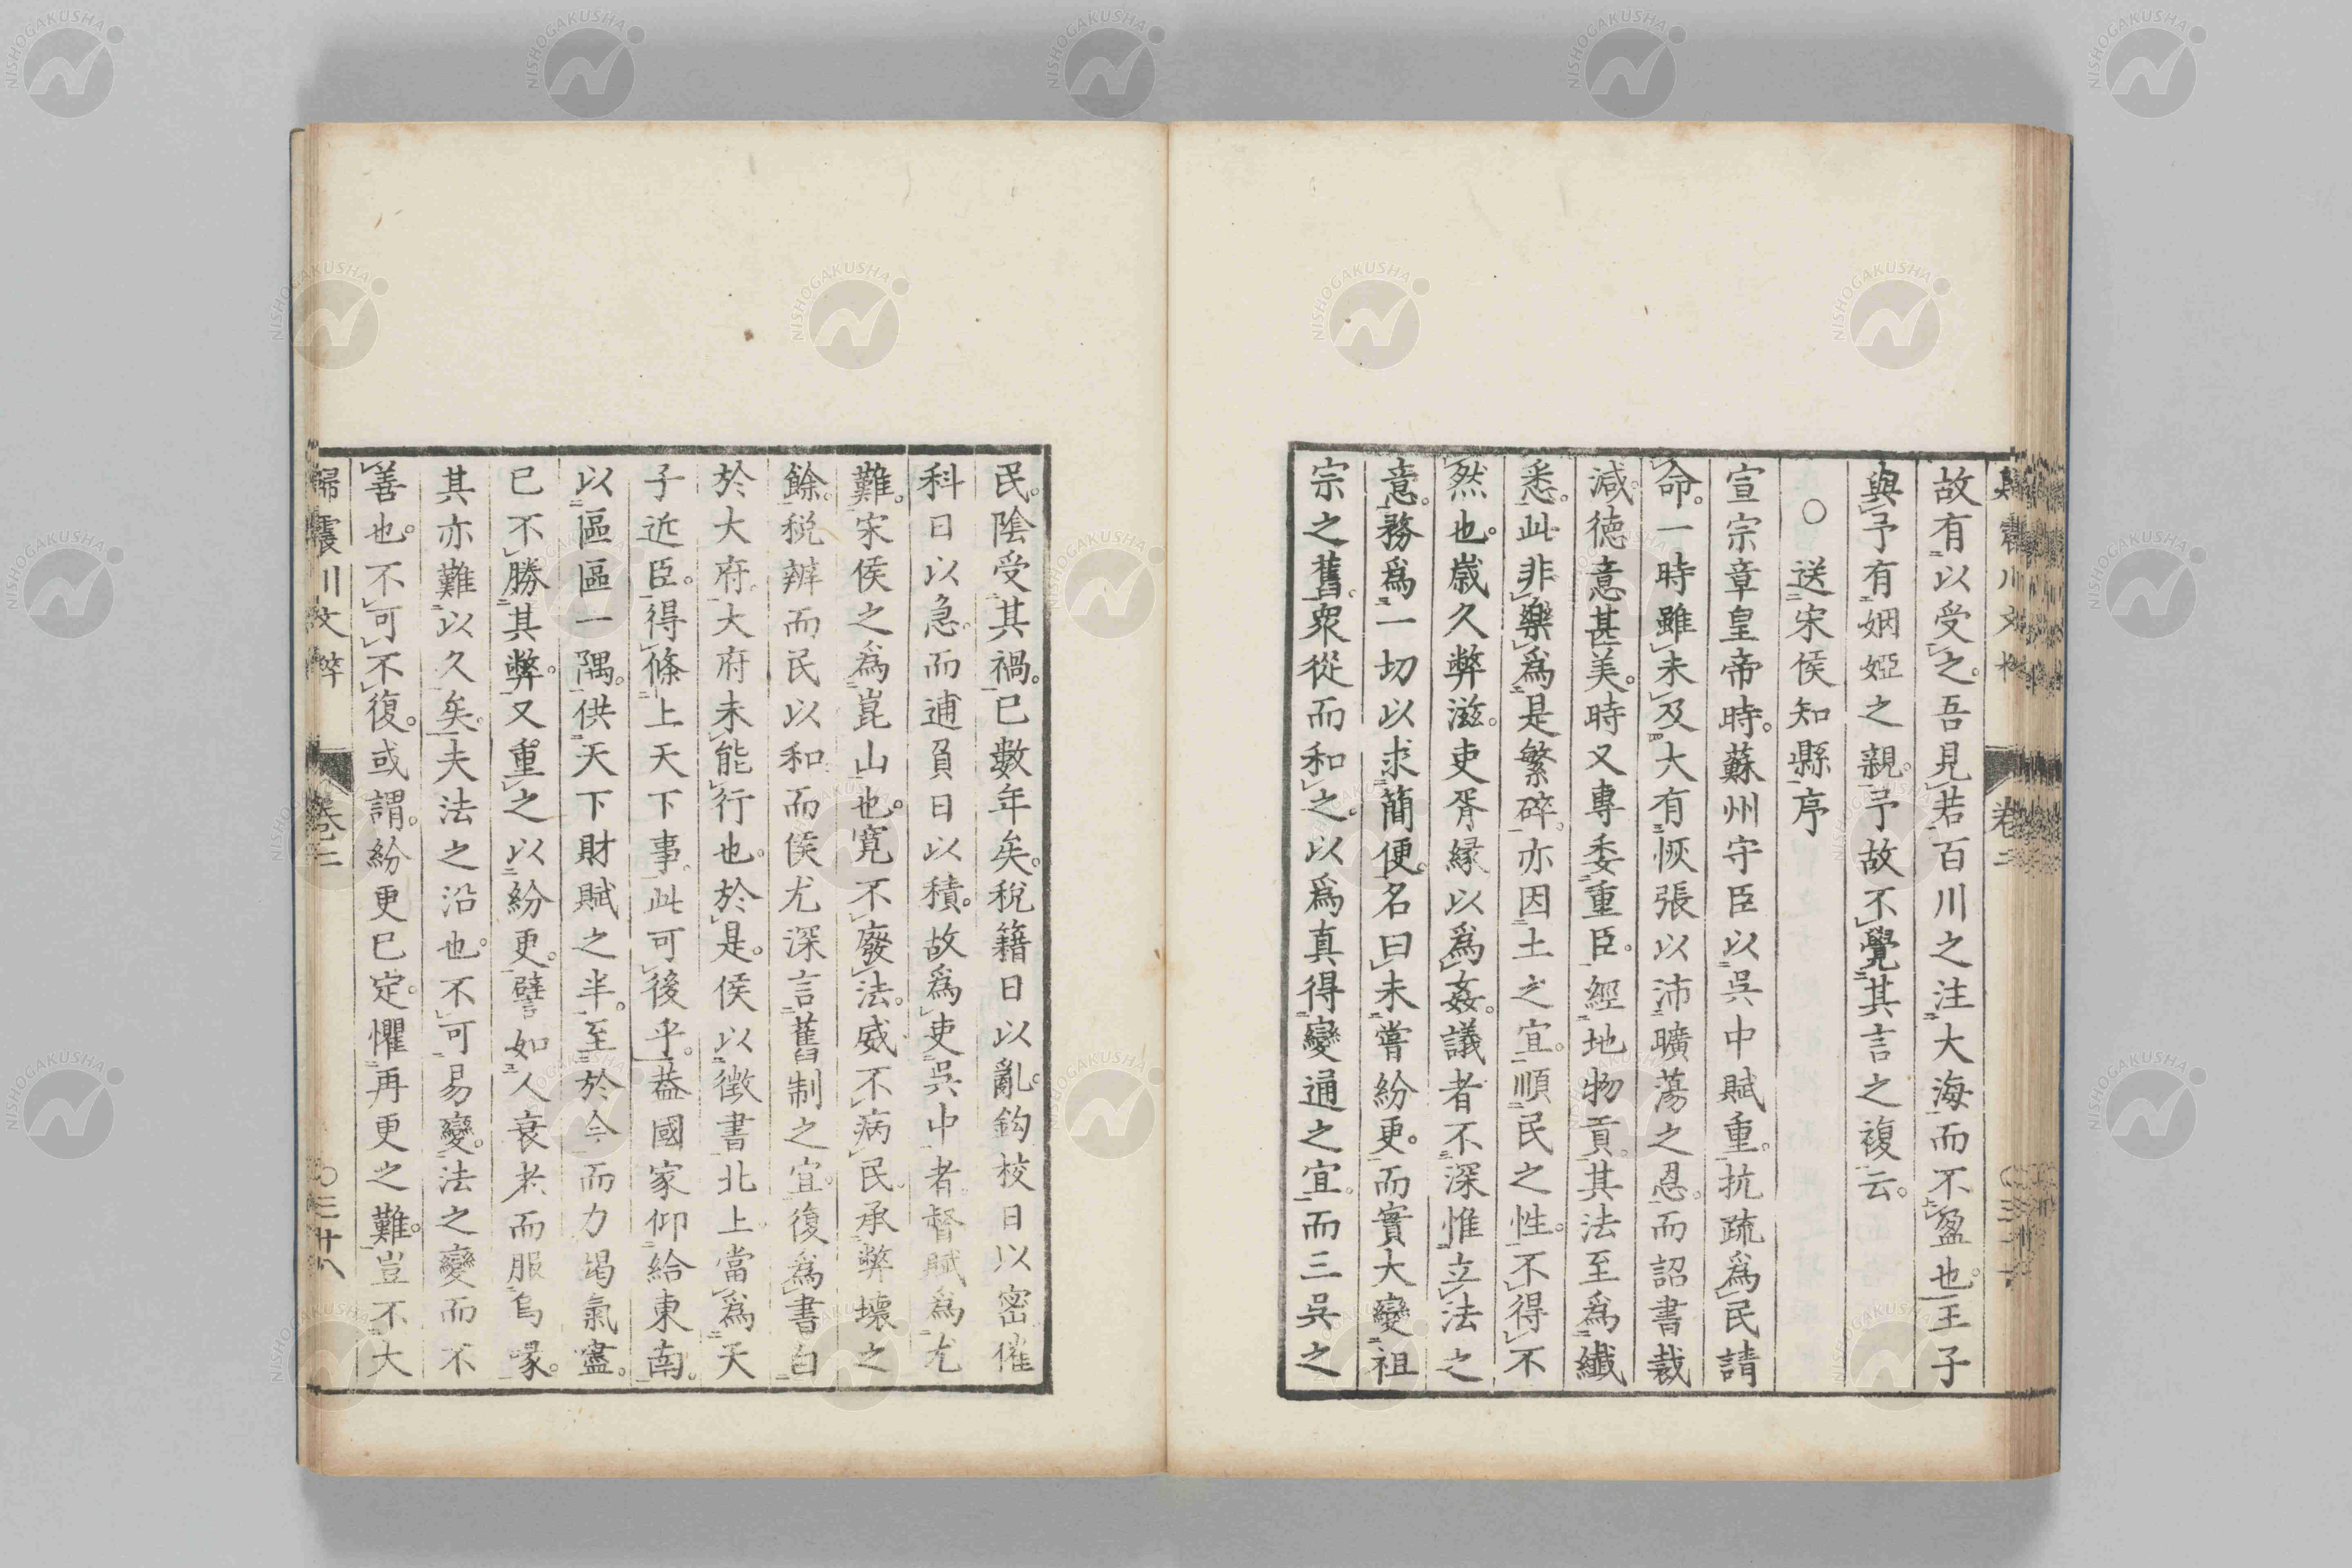 故有以受之。吾見若百川之注大海而不盈也王子
與予有姻婭之親。予故不覺其言之複云。
○送宋侯知縣序
宣宗章皇帝時。蘇州守臣以吳中賦重。抗疏爲民請
命。一時雖未及大有恢張以沛曠蕩之恩。而詔書裁
減。德意甚美。時又專委重臣。經地物貢。其法至爲纖
悉。此非樂爲是繁碎。亦因土之宜。順民之性。不得不
然也。歲久弊滋。吏胥緣以爲姦。議者不深惟立法之
意。務爲一切以求簡便。名曰未嘗紛更。而實大變祖
宗之舊。衆從而和之。以爲真得變通之宜。而三吳之
民。陰受其禍。已數年矣。稅籍日以亂。鈎校日以密催
科日以急。而逋負日以積。故爲吏吳中者。督賦爲尤
難。宋侯之爲崑山也。寬不廢法。威不病民。承弊壞之
餘。稅辦而民以和。而侯尤深言舊制之宜。復爲書白
於大府。大府未能行也。於是。侯以徵書北上。當爲天
子近臣。得條上天下事。此可後乎。蓋國家仰給東南。
以區區一隅。供天下財賦之半。至於今而力竭氣盡。
已不勝其弊。又重之以紛更。譬如人衰老而服烏喙。
其亦難以久矣。夫法之沿也。不可易變。法之變而不
善也。不可不復。或謂。紛更已定。懼再更之難。豈不大
歸震川文粹
卷之二
○三十八